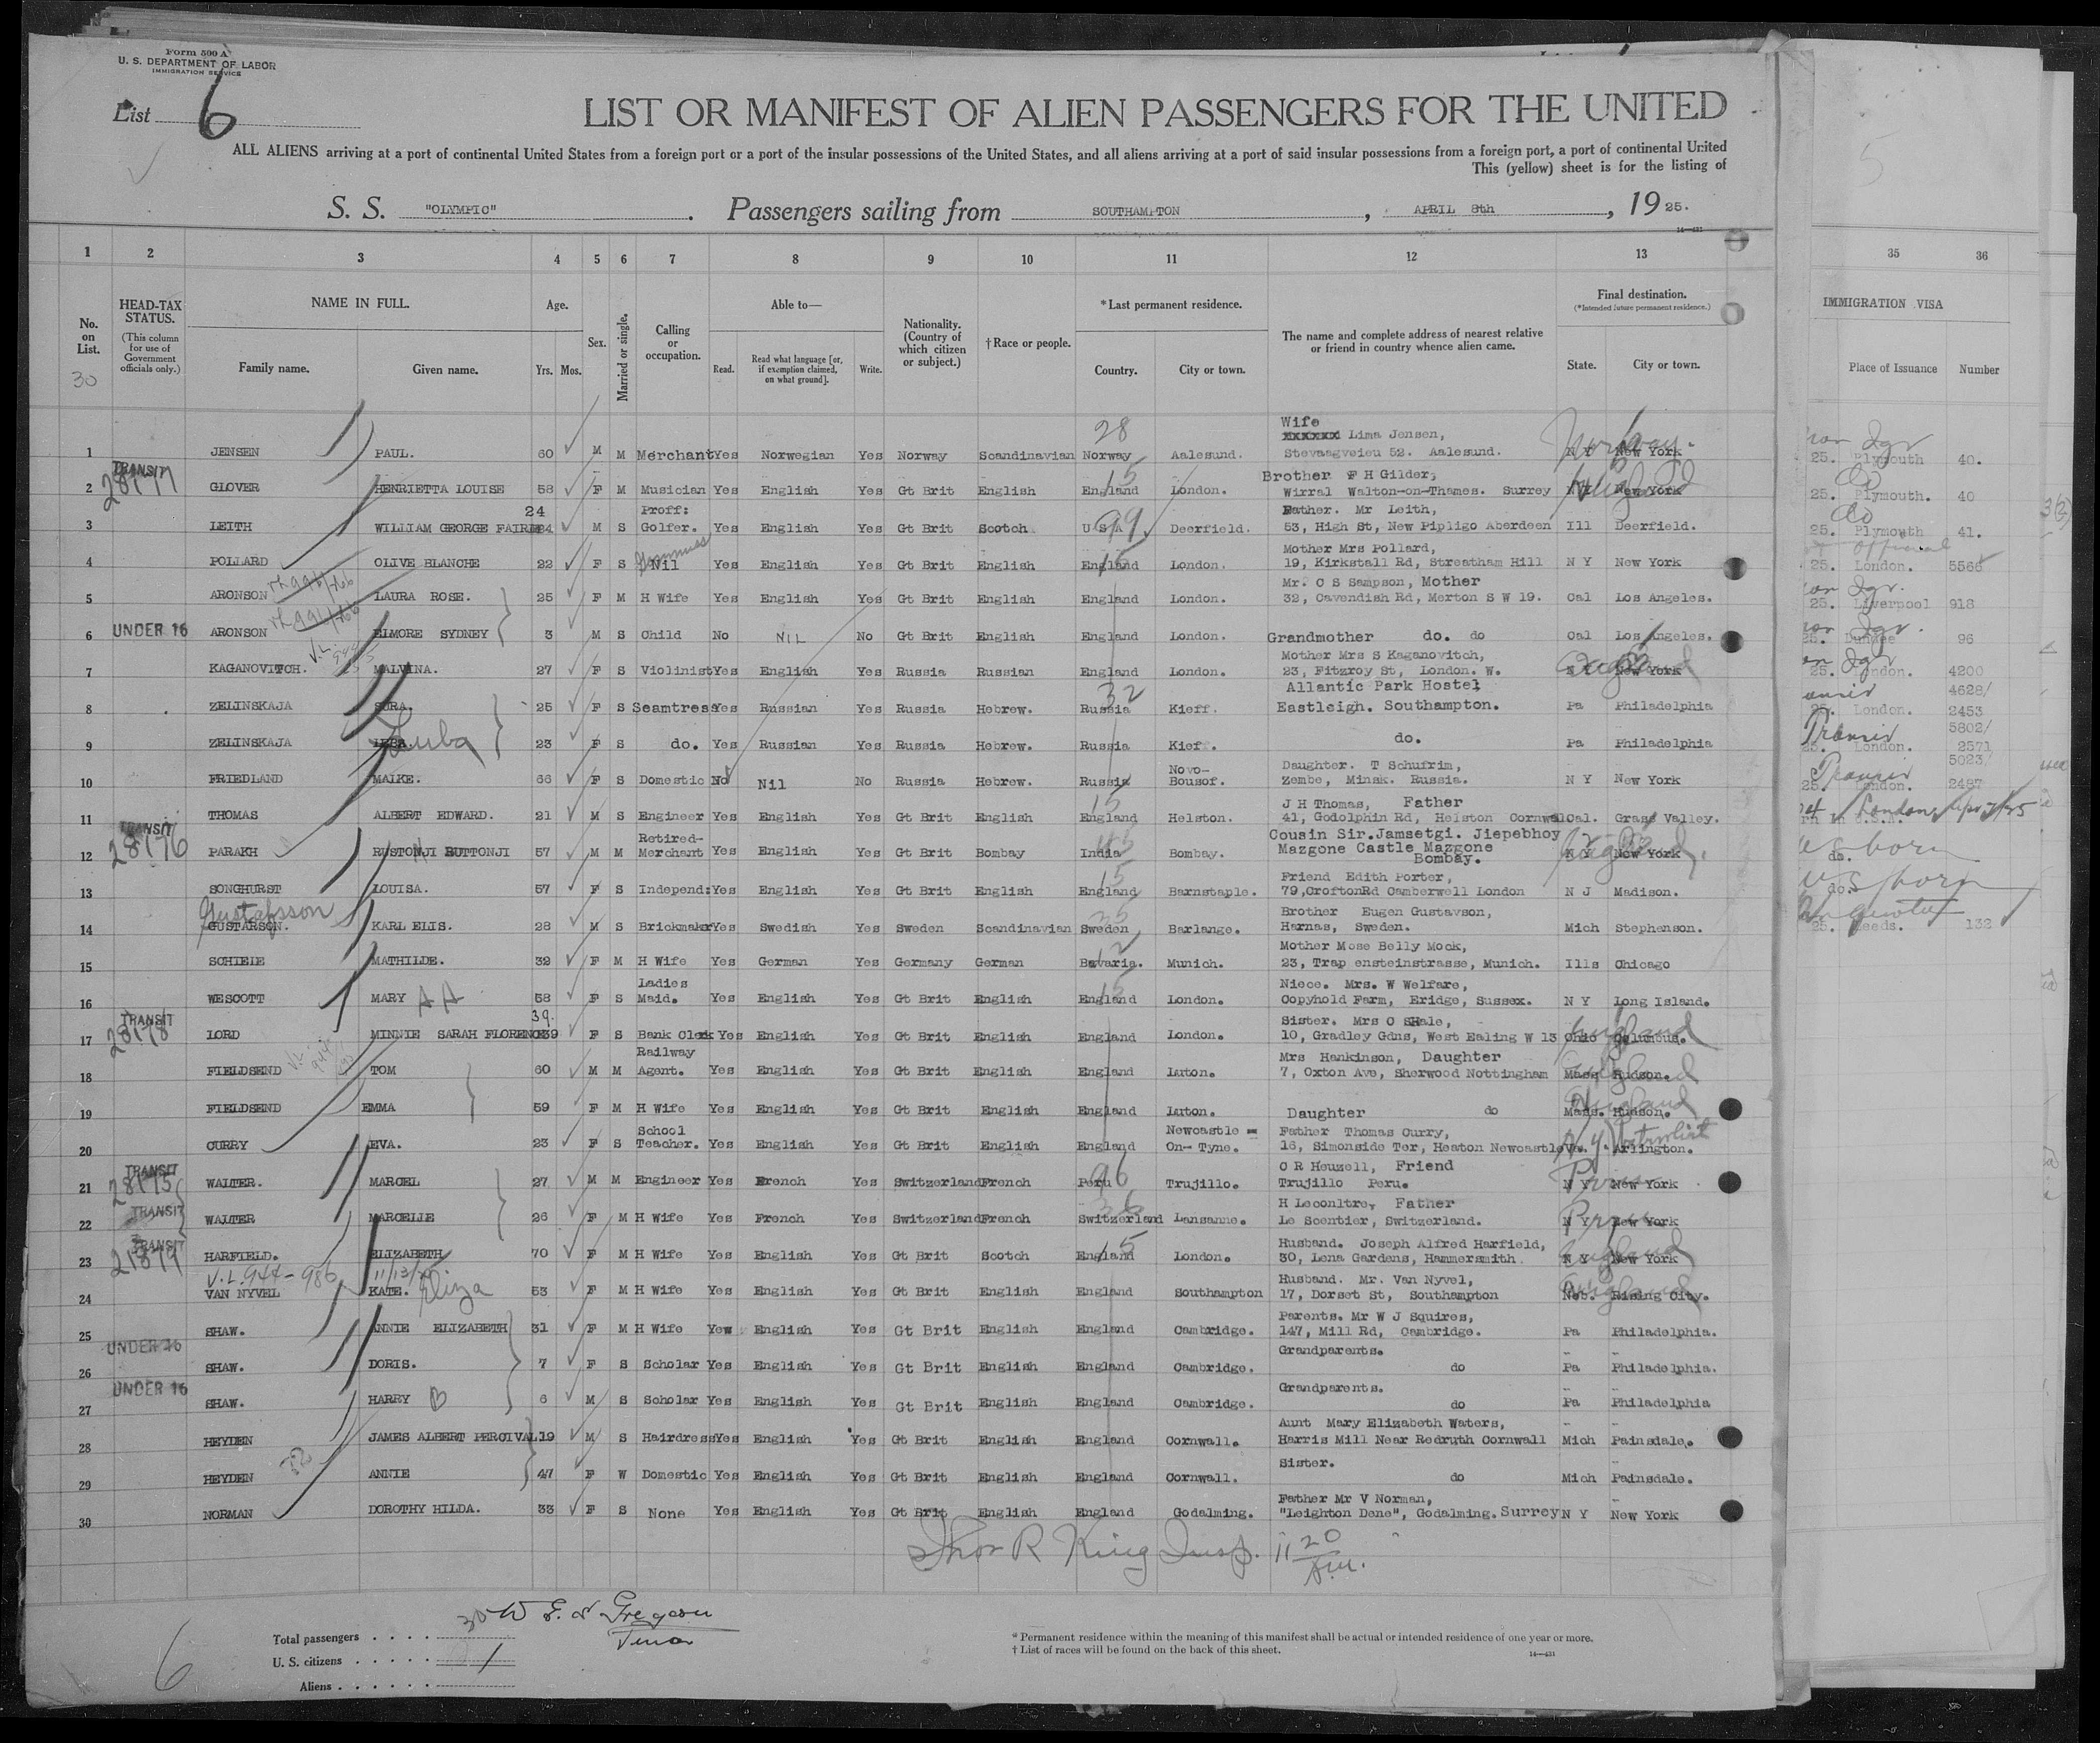 Form 500 A
U. S. DEPARTMENT OF LABOR
IMMIGRATION SERVICE
List 6
LIST OR MANIFEST OF ALIEN PASSENGERS FOR THE UNITED
ALL ALIENS arriving at a port of continental United States from a foreign port or a port of the insular possessions of the United States, and all aliens arriving at a port of said insular possessions from a foreign port, a port of continental United
This (yellow) sheet is for the listing of
S. S. "OLYMPIC". Passengers sailing from SOUTHAMPTON, APRIL 8th, 1925.
1 2 3 4 5 6 7 8 9 10 11 12 13 35 36
No. on List. HEAD-TAX STATUS. (This column for use of Government officials only.) NAME IN FULL. Family name. Given name. Age. Yrs. Mos. Sex. Married or single. Calling or occupation. Able to— Read. Read what language [or, if exemption claimed, on what ground]. Write. Nationality. (Country of which citizen or subject.) †Race or people. *Last permanent residence. Country. City or town. The name and complete address of nearest relative or friend in country whence alien came. Final destination. (*Intended future permanent residence.) State. City or town. IMMIGRATION VISA Place of Issuance Number
30
28
Wife
1 JENSEN PAUL. 60 M M Merchant Yes Norwegian Yes Norway Scandinavian Norway Aalesund. Lima Jensen, Stevaagveieu 52. Aalesund. N Y New York Norway. 25. Plymouth 40.
TRANSIT 28177 15 Brother F H Gilder,
2 GLOVER HENRIETTA LOUISE 58 F M Musician Yes English Yes Gt Brit English England London. Wirral Walton-on-Thames. Surrey N Y New York England 25. Plymouth. 40
24 Proff: 99 Father. Mr Leith,
3 LEITH WILLIAM GEORGE FAIRLIE 24 M S Golfer. Yes English Yes Gt Brit Scotch U S A Deerfield. 53, High St, New Pipligo Aberdeen Ill Deerfield. 25. Plymouth 41.
15 Mother Mrs Pollard,
4 POLLARD OLIVE BLANCHE 22 F S Nil Yes English Yes Gt Brit English England London. 19, Kirkstall Rd, Streatham Hill N Y New York 25. London. 5566
Mr. C S Sampson, Mother
5 ARONSON LAURA ROSE. 25 F M H Wife Yes English Yes Gt Brit English England London. 32, Cavendish Rd, Merton S W 19. Cal Los Angeles. 25. Liverpool 918
UNDER 16
6 ARONSON ELMORE SYDNEY 3 M S Child No NIL No Gt Brit English England London. Grandmother do. do Cal Los Angeles. 25. Dundee 96
Mother Mrs S Kaganovitch,
7 KAGANOVITCH. MALVINA. 27 F S Violinist Yes English Yes Russia Russian England London. 23, Fitzroy St, London. W. N Y New York England 25. London. 4200
32 Allantic Park Hostel 4628/
8 ZELINSKAJA SURA. 25 F S Seamtress Yes Russian Yes Russia Hebrew. Russia Kieff. Eastleigh. Southampton. Pa Philadelphia 25. London. 2453
Luba Transit 5802/
9 ZELINSKAJA 23 F S do. Yes Russian Yes Russia Hebrew. Russia Kieff. do. Pa Philadelphia 25. London. 2571
Novo- Daughter. T Schufrim, Transit 5023/
10 FRIEDLAND MAIKE. 66 F S Domestic No Nil No Russia Hebrew. Russia Bousof. Zembe, Minsk. Russia. N Y New York 25. London. 2487
15 J H Thomas, Father
11 THOMAS ALBERT EDWARD. 21 M S Engineer Yes English Yes Gt Brit English England Helston. 41, Godolphin Rd, Helston Cornwal Cal. Grass Valley.
TRANSIT 28176 Retired- Cousin Sir.Jamsetgi. Jiepebhoy
12 PARAKH RUSTONJI BUTTONJI 57 M M Merchant Yes English Yes Gt Brit Bombay India Bombay. Mazgone Castle Mazgone Bombay. N Y New York England. do.
15 Friend Edith Porter,
13 SONGHURST LOUISA. 57 F S Independ: Yes English Yes Gt Brit English England Barnstaple. 79,CroftonRd Camberwell London N J Madison. do. US born
Gustafsson 35 Brother Eugen Gustavson,
14 GUSTARSON. KARL ELIS. 28 M S Brickmakr Yes Swedish Yes Sweden Scandinavian Sweden Barlange. Harnas, Sweden. Mich Stephenson. 25. Leeds. 132
12 Mother Mose Belly Mock,
15 SCHIEIE MATHILDE. 32 F M H Wife Yes German Yes Germany German Bavaria. Munich. 23, Trap ensteinstrasse, Munich. Ills Chicago
Ladies 15 Niece. Mrs. W Welfare,
16 WESCOTT MARY A A 58 F S Maid. Yes English Yes Gt Brit English England London. Copyhold Farm, Eridge, Sussex. N Y Long Island.
TRANSIT 28178 39. Sister. Mrs C SHale,
17 LORD MINNIE SARAH FLORENCE 39 F S Bank Clerk Yes English Yes Gt Brit English England London. 10, Gradley Gdns, West Ealing W 13 Ohio Columbus. England
Railway Mrs Hankinson, Daughter
18 FIELDSEND TOM 60 M M Agent. Yes English Yes Gt Brit English England Luton. 7, Oxton Ave, Sherwood Nottingham Mass Hudson. England
19 FIELDSEND EMMA 59 F M H Wife Yes English Yes Gt Brit English England Luton. Daughter do Mass. Hudson. England
School Newcastle - Father Thomas Curry,
20 CURRY EVA. 23 F S Teacher. Yes English Yes Gt Brit English England On- Tyne. 16, Simonside Ter, Heaton Newcastle Va. Arlington.
TRANSIT 28175 96 C R Heuzell, Friend
21 WALTER. MARCEL 27 M M Engineer Yes French Yes Switzerland French Peru Trujillo. Trujillo Peru. N Y New York Peru
TRANSIT 36 H Leconltre, Father
22 WALTER MARCELLE 26 F M H Wife Yes French Yes Switzerland French Switzerland Lansanne. Le Scentier, Switzerland. N Y New York Peru
TRANSIT 21879 15 Husband. Joseph Alfred Harfield,
23 HARFIELD. ELIZABETH 70 F M H Wife Yes English Yes Gt Brit Scotch England London. 30, Lena Gardens, Hammersmith. N Y New York England
V.L. 944-986 Eliza Husband. Mr. Van Nyvel,
24 VAN NYVEL KATE. 53 F M H Wife Yes English Yes Gt Brit English England Southampton 17, Dorset St, Southampton Neb. Rising City. England
Parents. Mr W J Squires,
25 SHAW. ANNIE ELIZABETH 31 F M H Wife Yew English Yes Gt Brit English England Cambridge. 147, Mill Rd, Cambridge. Pa Philadelphia.
UNDER 16 Grandparents.
26 SHAW. DORIS. 7 F S Scholar Yes English Yes Gt Brit English England Cambridge. do Pa Philadelphia.
UNDER 16 Grandparents.
27 SHAW. HARRY B 6 M S Scholar Yes English Yes Gt Brit English England Cambridge. do Pa Philadelphia
Aunt Mary Elizabeth Waters,
28 HEYDEN JAMES ALBERT PERCIVAL 19 M S Hairdress Yes English Yes Gt Brit English England Cornwall. Harris Mill Near Redruth Cornwall Mich Painsdale.
Sister.
29 HEYDEN ANNIE 47 F W Domestic Yes English Yes Gt Brit English England Cornwall. do Mich Painsdale.
Father Mr V Norman,
30 NORMAN DOROTHY HILDA. 33 F S None Yes English Yes Gt Brit English England Godalming. "Leighton Dene", Godalming. Surrey N Y New York
Thos R King Insp. 11 20 AM.
Total passengers . . . . 30
U. S. citizens . . . . . 1
Aliens . . . . . .
6
* Permanent residence within the meaning of this manifest shall be actual or intended residence of one year or more.
† List of races will be found on the back of this sheet.
14—431